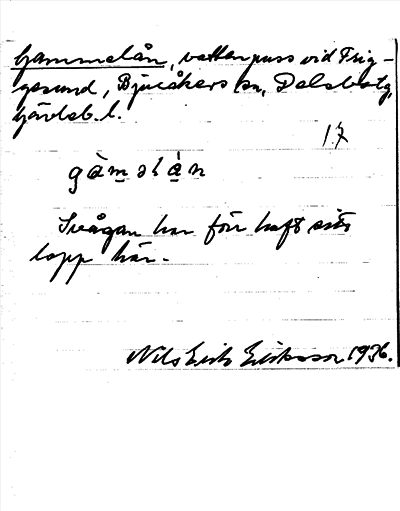 Gammelån, vattenpuss vid Frig-
gesund, Bjuråkers sn, Delsbotg,
Gävleb. l.
17
gàməlàn
Svågan har förr haft sitt
lopp här.
Nils Erik Eriksson 1936.